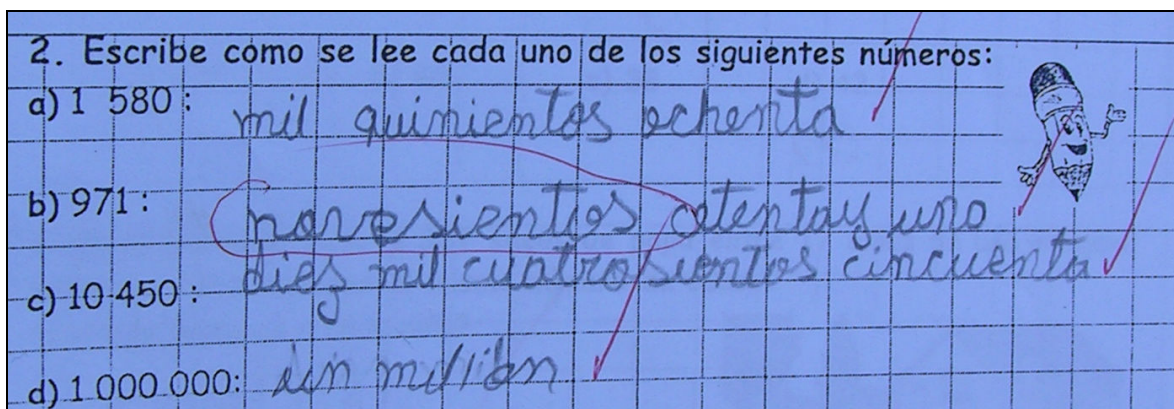 2. Escribe cómo se lee cada uno de los siguientes números:
a) 1 580: mil quinientos ochenta
b) 971: novesientos cetenta y uno
c) 10 450: diez mil cuatrosientos cincuenta
d) 1 000 000: un millón